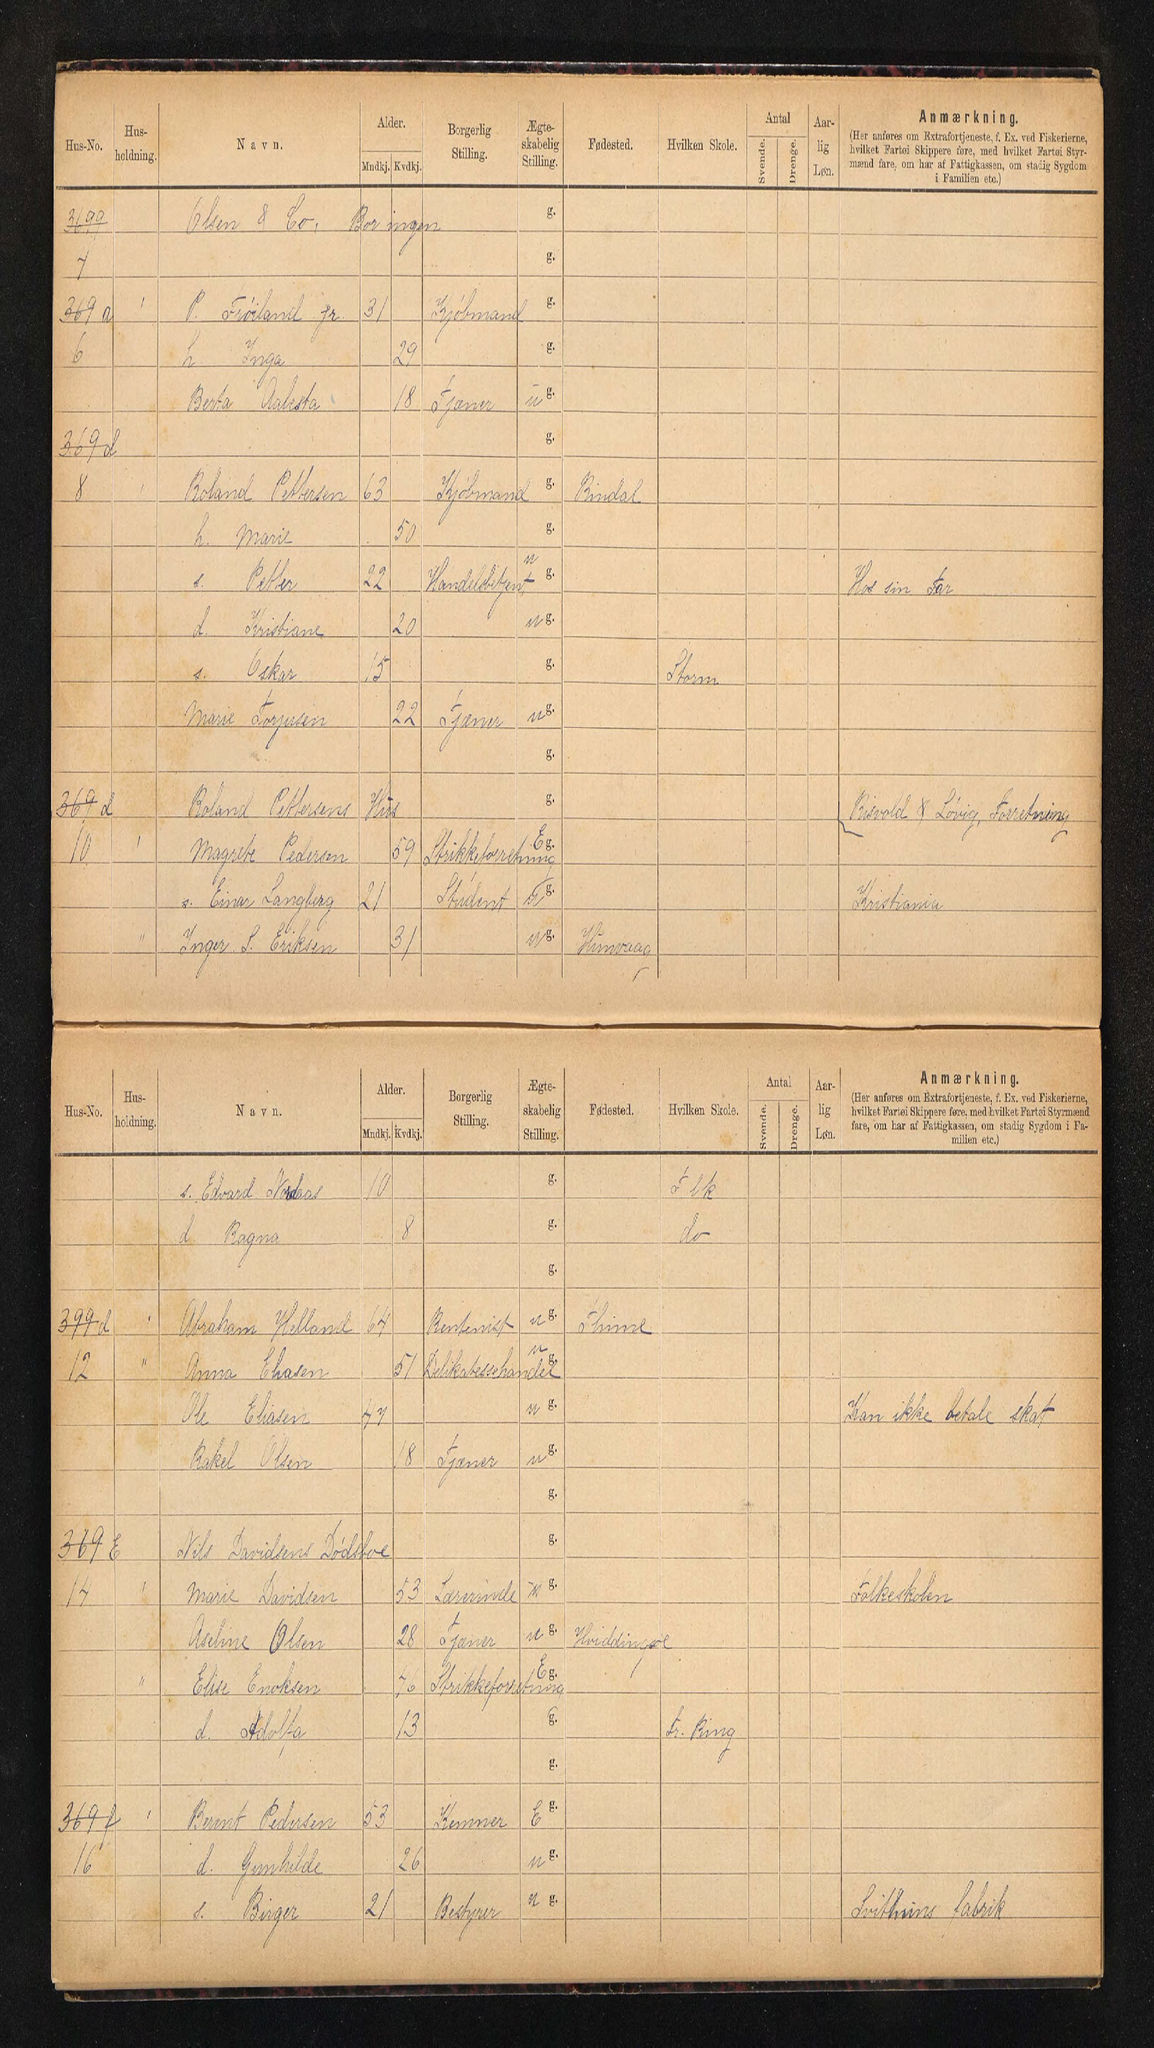 Hus-No. Hus-holdning. Navn. Alder. Mndkj. Kvdkj. Borgerlig Stilling. Ægte-skabelig Stilling. Fødested. Hvilken Skole. Antal Svende. Drenge. Aar-lig Løn. Anmærkning.
(Her anføres om Extrafortjeneste, f. Ex. ved Fiskerierne,
hvilket Fartøi Skippere føre, med hvilket Fartøi Styr-
mænd fare, om har af Fattigkassen, om stadig Sygdom
i Familien etc.)
Olsen & Co. g.
7 g.
369 a " P. Frøiland jr. 31 Kjøbmand g.
6 h Inga 29 g.
Berta 18 Tjæner u g.
369 d g.
8 " Roland Pettersen 63 Kjøbmand g. Rindal
h. Marie 50 g.
s. Petter 22 Handelsbetjent u g. Hos sin Far
d. Kristiane 20 u g.
s. Oskar 15 g. Storm
Marie Torjusen 22 Tjæner u g.
g.
369 d Roland Pettersens Hus g. Risvold & Løvig, Forretning
10 " Magrete Pedersen 59 Strikkeforretning E g.
s. Einar Langberg 21 Student u g. Kristiania
" Inger S. Eriksen 31 u g.
Hus-No. Hus-holdning. Navn. Alder. Mndkj. Kvdkj. Borgerlig Stilling. Ægte-skabelig Stilling. Fødested. Hvilken Skole. Antal Svende. Drenge. Aar-lig Løn. Anmærkning.
(Her anføres om Extrafortjeneste, f. Ex. ved Fiskerierne,
hvilket Fartøi Skippere føre, med hvilket Fartøi Styrmænd
fare, om har af Fattigkassen, om stadig Sygdom i Fa-
milien etc.)
s. Edvard 10 g. Flk
d Ragna 8 g. do
g.
399 d " Abraham Helland 64 Rentenist u g. Thime
12 " Anna Eliasen 51 Delikatessehandel u g.
Ole Eliasen 47 u g. Kan ikke betale skat
Rakel Olsen 18 Tjæner u g.
g.
369 E Nils Davidsens Dødsboe g.
14 " Marie Davidsen 53 Lærerinde u g. Folkeskolen
Aseline Olsen 28 Tjæner u g. Hviddingsøe
" Elise Enoksen 76 Strikkeforretning E g.
d. Adolfa 13 g. Fr. Ring
g.
369 f " Berent Pedersen 53 Kemner E g.
16 d. Gunhilde 26 u g.
s. Birger 21 Bestyrer u g. Svithuns fabrik